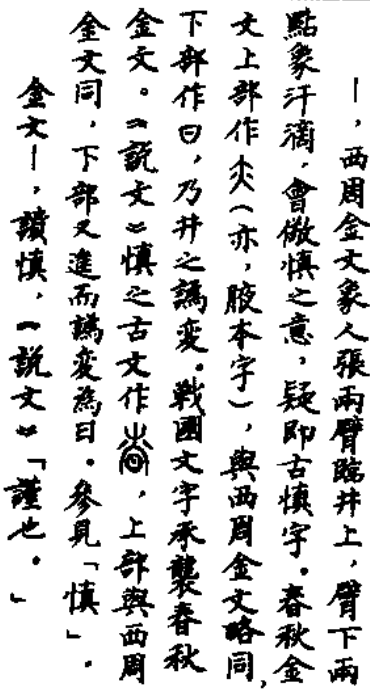 ｜，西周金文象人張兩臂臨井上，臂下兩
點象汗滴，會儆慎之意，疑即古慎字。春秋金
文上部作（亦，腋本字），與西周金文略同，
下部作日，乃井之譌變。戰國文字承襲春秋
金文。《說文》慎之古文作，上部與西周
金文同，下部又進而譌變為日。參見「慎」。
金文｜，讀慎，《說文》「謹也。」